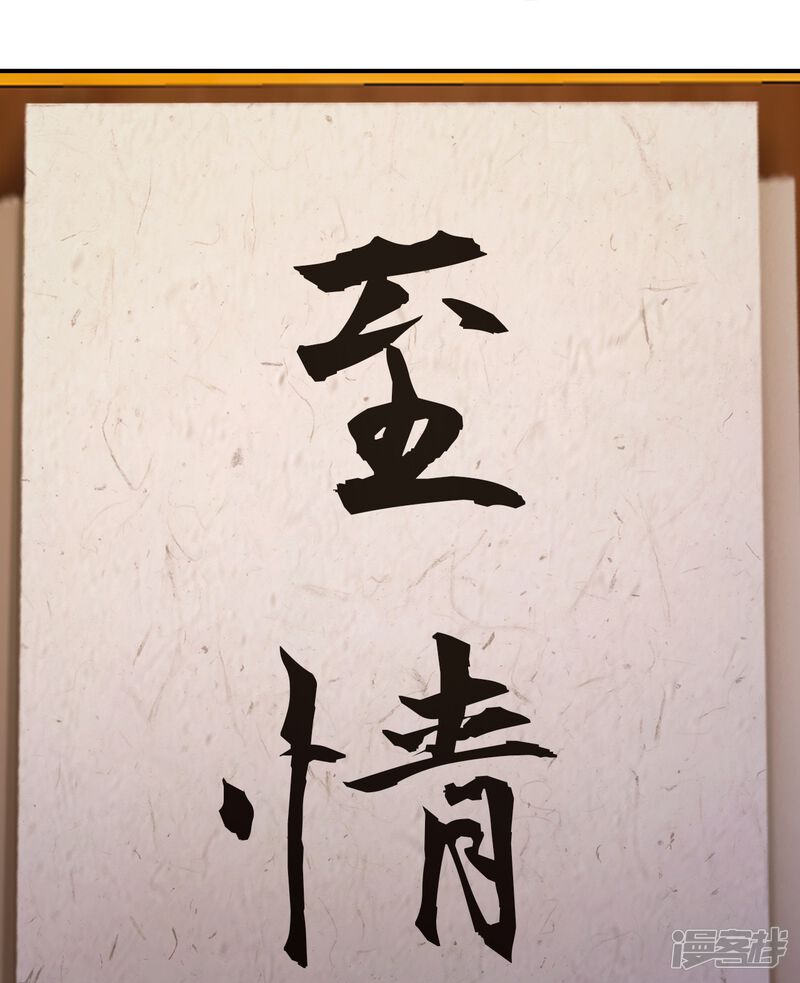 至情
漫客栈